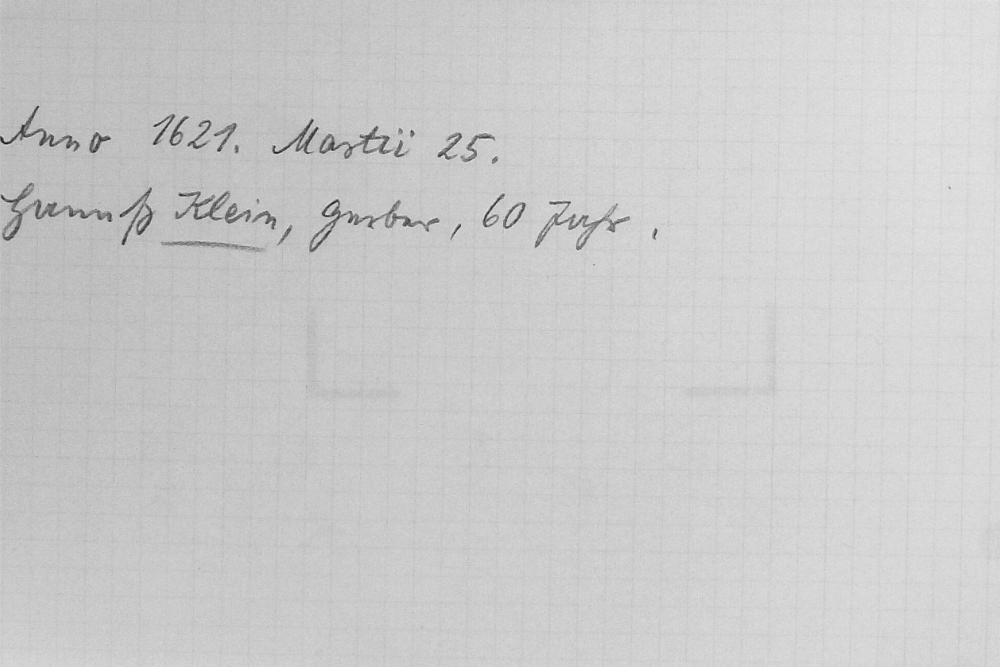 Anno 1621. Martii 25.
Hannß Klein, gerber, 60 Jahr .